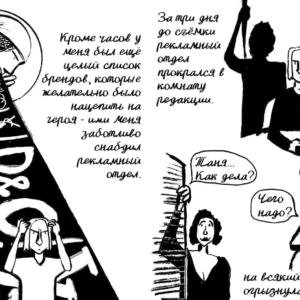 Кроме часов у
меня был ещё
целый список
брендов, которые
желательно было
нацепить на
героя - ими меня
заботливо
снабдил
рекламный
отдел.
За три дня
до съёмки
рекламный
отдел
прокрался в
комнату
редакции.
D&G
Таня...
Как дела?
Чего
надо?
на всякий
огрызнула